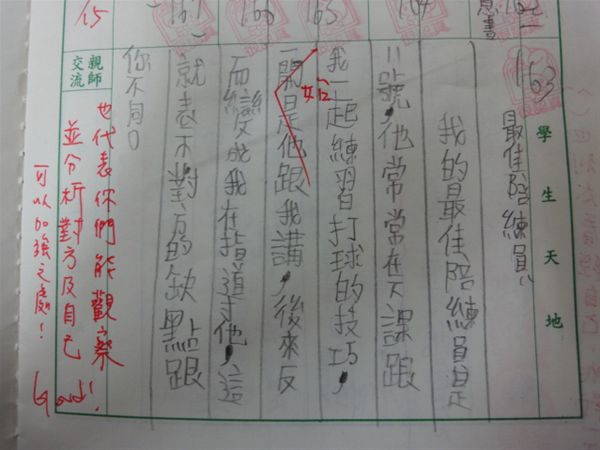 學生天地
163
最佳陪練員
我的最佳陪練員是
11號,他常常在下課跟
我一起練習打球的技巧,
一開是他跟我講,後來反
始
而變成我在指導他,這
就表示對方的缺點跟
你不同。
親師交流
也代表你們能觀察
並分析對方及自己
可以加強之處!
Good!
15
167
166
165
164
162